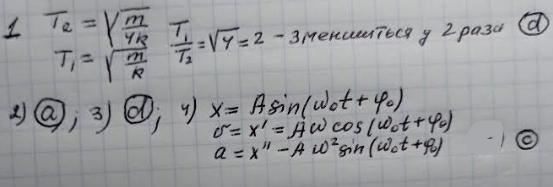 1 T₂ = √(m/4k) T₁/T₂ = √4 = 2 - Зменшиться у 2 рази d
T₁ = √(m/k)
2) a; 3) d; 4) x = A sin(ω₀t + φ₀)
v = x' = Aω cos(ω₀t + φ₀)
a = x'' - Aω² sin(ω₀t + φ₀) - c